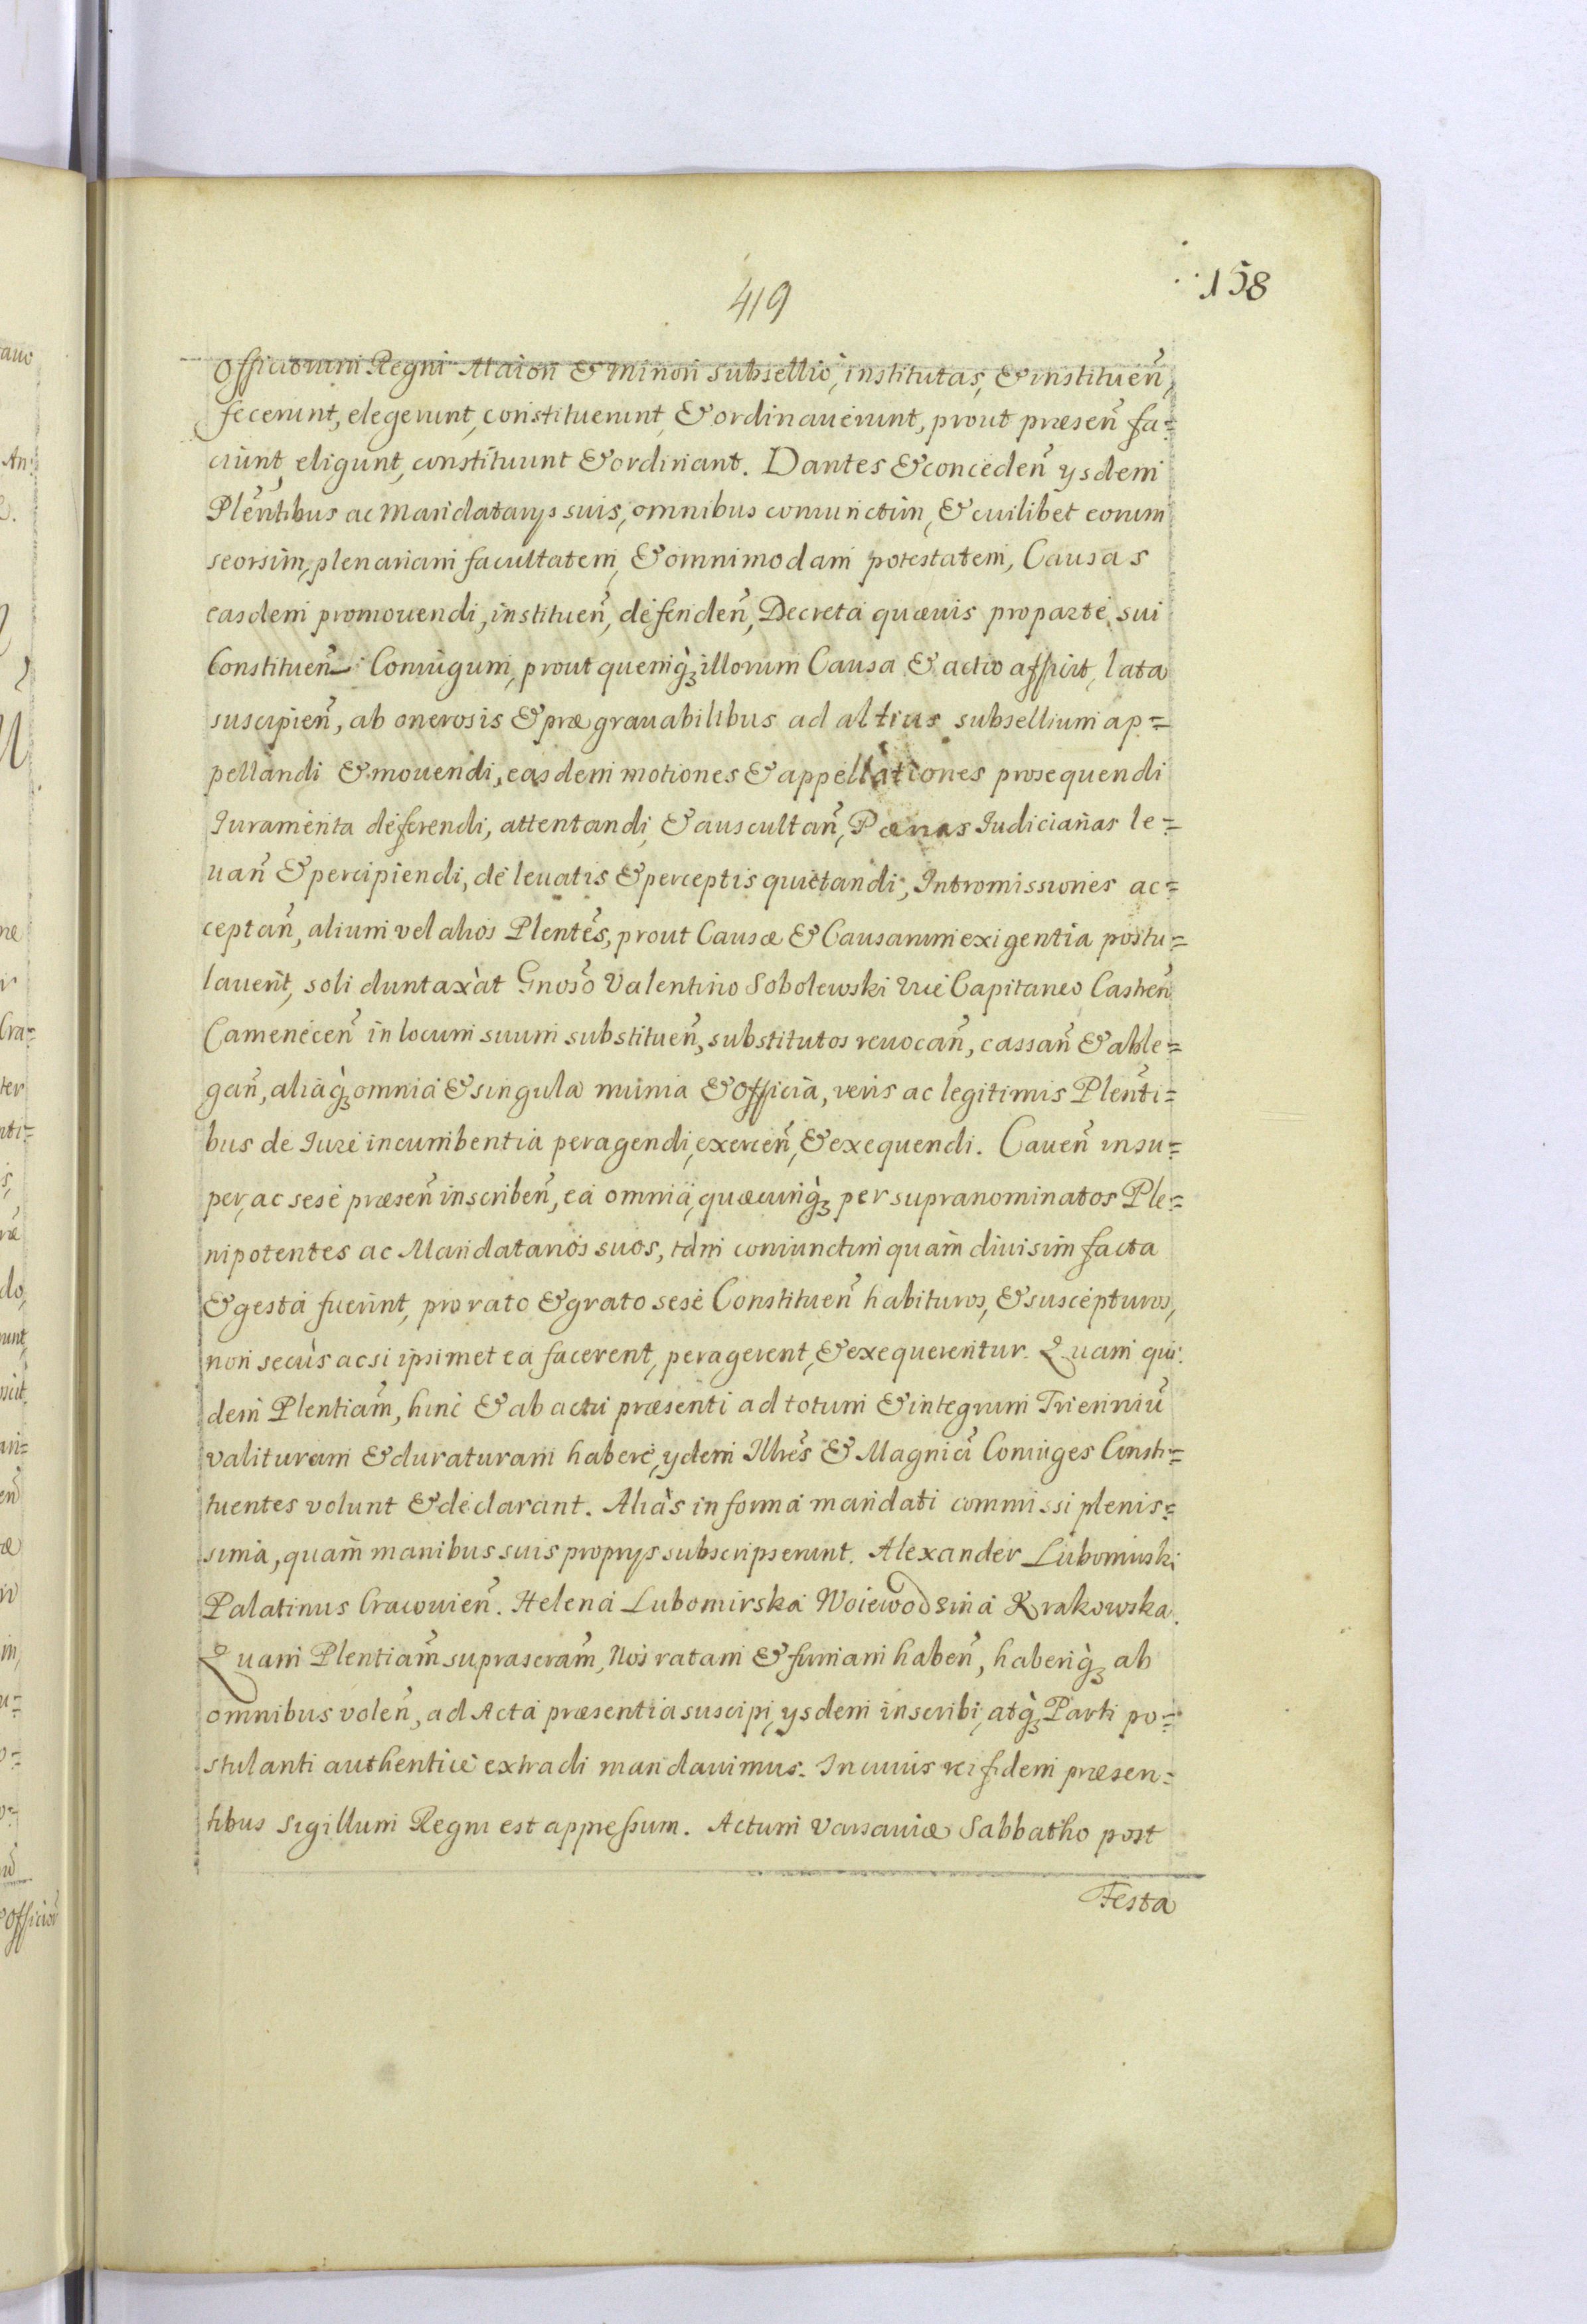 419
158
Officiorum Regni Maiori & minori subsellio, institutas, & instituen̄,
fecerunt, elegerunt, constituerunt, & ordinauerunt, prout præsen̄ fa=
ciunt, eligunt, constituunt & ordinant. Dantes & conceden̄ ysdem
Plēntibus ac Mandatarys suis, omnibus coniunctim, & cuilibet eorum
seorsim, plenariam facultatem, & omnimodam potestatem, Causas
easdem promouendi, instituen̄, defenden̄, Decreta quæuis pro parte sui
Constituen̄ Coniugum, prout quemq̀ʒ illorum Causa & actio afficit, lata
suscipien̄, ab onerosis & prægrauabilibus ad altius subsellium ap=
pellandi & mouendi, easdem motiones & appellationes prosequendi
Iuramenta deferendi, attentandi, & auscultan̄, Pœnas Iudiciarias le=
uan̄ & percipiendi, de leuatis & perceptis quietandi, Intromissiones ac=
ceptan̄, alium vel alios Plentēs, prout Causæ & Causarum exigentia postu=
lauerit, soli duntaxàt Gnoso Valentino Sobolewski Vice Capitaneo Castren̄
Camenecen̄ in locum suum substituen̄, substitutos reuocan̄, cassan̄ & able=
gan̄, aliaq̀ʒ omnia & singula munia & officia, veris ac legitimis Plenti=
bus de Iure incumbentia peragendi, exercen̄, & exequendi. Cauen̄ insu=
per, ac sese præsen̄ inscriben̄, ea omnia, quæcunq̀ʒ per supranominatos Ple=
nipotentes ac Mandatarios suos, tàm coniunctim quam diuisim facta
& gesta fuerint, pro rato & grato sese Constituen̄ habituros, & suscepturos,
non secùs acsi ipsimet ea facerent, peragerent, & exequerentur. Quam qui=
dem Plentiam̄, hinc & ab actu præsenti ad totum & integrum Trienniū
valituram & duraturam habere, ydem Illrēs & Magnici Coniuges Consti=
tuentes volunt & declarant. Aliàs in forma mandati commissi plenis=
sima, quam manibus suis proprys subscripserunt. Alexander Lubomirski
Palatinus Cracouien̄. Helena Lubomirska Woiewodzina Krakowska.
Quam Plentiam̄ suprascram̄, Nos ratam & firmam haben̄, haberiq̀ʒ ab
omnibus volen̄, ad Acta præsentia suscipi, ysdem inscribi, atq̀ʒ Parti po=
stulanti authentice extradi mandauimus. In cuius rei fidem præsen=
tibus Sigillum Regni est appressum. Actum Varsauiæ Sabbatho post
Festa